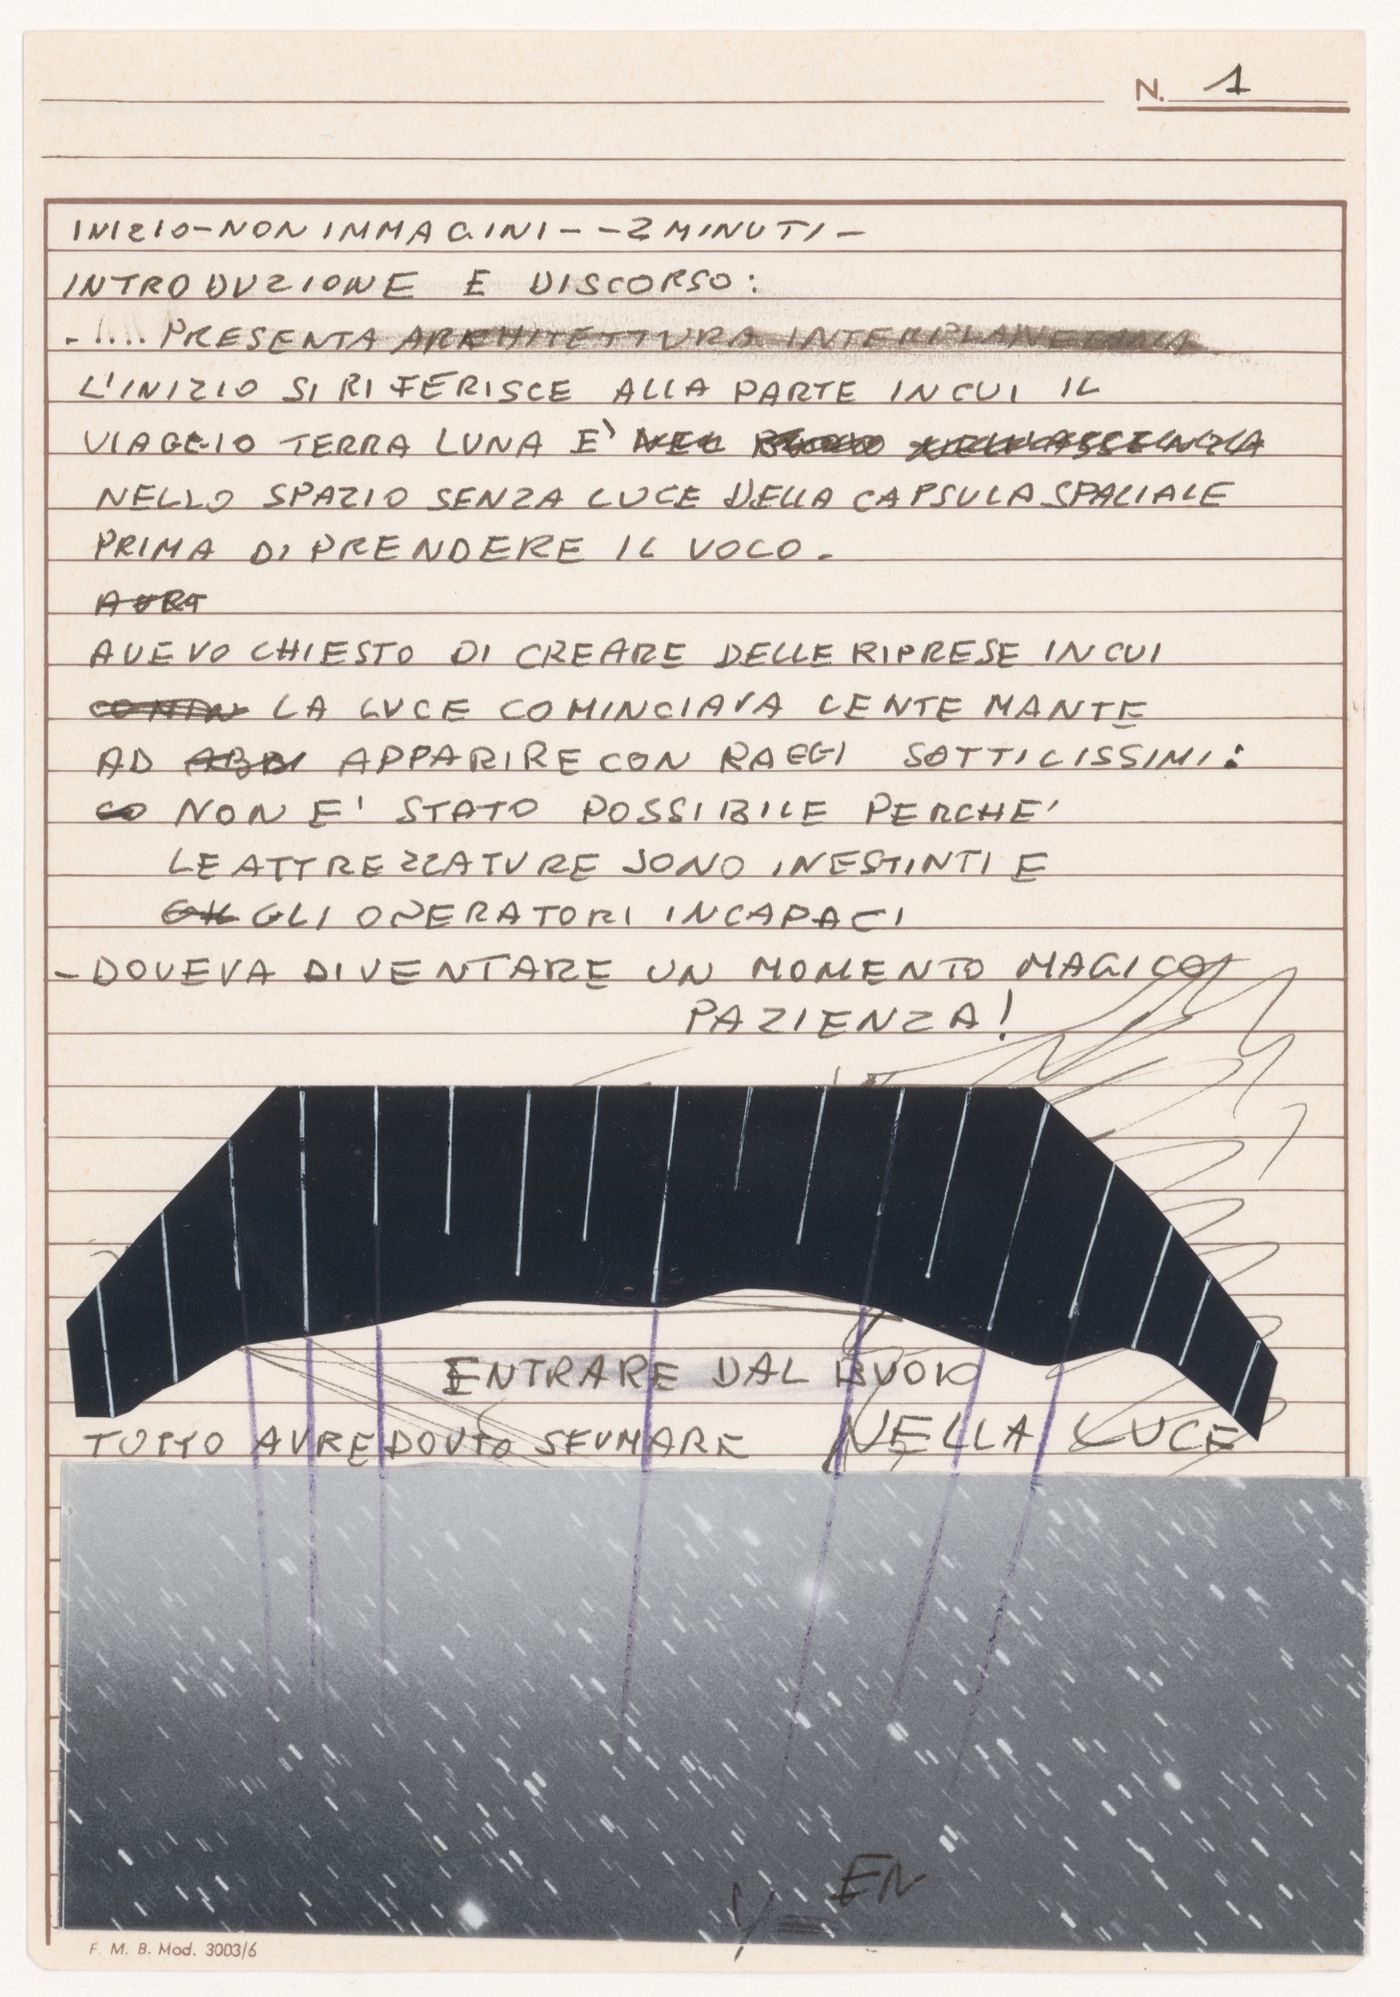 N. 1
INIZIO-NON IMMAGINI - - 2 MINUTI -
INTRODUZIONE E DISCORSO:
- .... PRESENTA ARCHITETTURA INTERPLANETARIA
L'INIZIO SI RIFERISCE ALLA PARTE IN CUI IL
VIAGGIO TERRA LUNA E' NEL BUIO NELL'ASSENZA
NELLO SPAZIO SENZA LUCE DELLA CAPSULA SPAZIALE
PRIMA DI PRENDERE IL VOLO.
AVEVO CHIESTO DI CREARE DELLE RIPRESE IN CUI
LA LUCE COMINCIAVA LENTEMANTE
AD APPARIRE CON RAGGI SOTTILISSIMI:
CO NON E' STATO POSSIBILE PERCHE'
LE ATTREZZATURE SONO INESTINTI E
GLI OPERATORI INCAPACI
- DOVEVA DIVENTARE UN MOMENTO MAGICO
PAZIENZA!
ENTRARE DAL BUOIO
TUTTO AVREI DOVUTO SFUMARE NELLA LUCE
EN
F. M. B. Mod. 3003/6